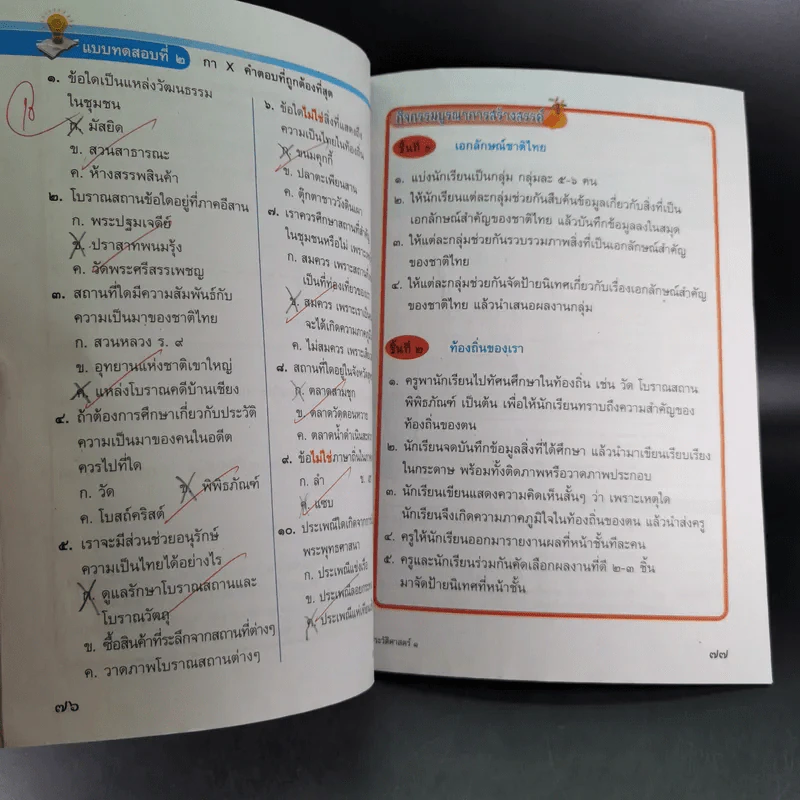 แบบทดสอบที่ ๒
กา X คำตอบที่ถูกต้องที่สุด
๑. ข้อใดเป็นแหล่งวัฒนธรรม
ในชุมชน
ก. มัสยิด
ข. สวนสาธารณะ
ค. ห้างสรรพสินค้า
๒. โบราณสถานข้อใดอยู่ที่ภาคอีสาน
ก. พระปฐมเจดีย์
ข. ปราสาทพนมรุ้ง
ค. วัดพระศรีสรรเพชญ
๓. สถานที่ใดมีความสัมพันธ์กับ
ความเป็นมาของชาติไทย
ก. สวนหลวง ร. ๙
ข. อุทยานแห่งชาติเขาใหญ่
ค. แหล่งโบราณคดีบ้านเชียง
๔. ถ้าต้องการศึกษาเกี่ยวกับประวัติ
ความเป็นมาของคนในอดีต
ควรไปที่ใด
ก. วัด ข. พิพิธภัณฑ์
ค. โบสถ์คริสต์
๕. เราจะมีส่วนช่วยอนุรักษ์
ความเป็นไทยได้อย่างไร
ก. ดูแลรักษาโบราณสถานและ
โบราณวัตถุ
ข. ซื้อสินค้าที่ระลึกจากสถานที่ต่างๆ
ค. วาดภาพโบราณสถานต่างๆ
๗๖
๖. ข้อใดไม่ใช่สิ่งที่แสดงถึง
ความเป็นไทยในท้องถิ่น
ก. ขนมคุกกี้
ข. ปลาตะเพียนสาน
ค. ตุ๊กตาชาววังดินเผา
๗. เราควรศึกษาสถานที่สำคัญ
ในชุมชนหรือไม่ เพราะ
ก. สมควร เพราะสถานที่
เป็นที่ท่องเที่ยวของ
ข. สมควร เพราะเราเป็น
จะได้เกิดความภาคภูมิใจ
ค. ไม่สมควร เพราะ
๘. สถานที่ใดอยู่ในจังหวัด
ก. ตลาดสามชุก
ข. ตลาดวัดดอนหวาย
ค. ตลาดน้ำดำเนินสะดวก
๙. ข้อไม่ใช่ภาษาถิ่นใน
ก. ลำ ข.
ค. แซบ
๑๐. ประเพณีใดเกิดจาก
พระพุทธศาสนา
ก. ประเพณีแข่งเรือ
ข. ประเพณีลอยกระทง
ค. ประเพณีแห่เทียน
กิจกรรมบูรณาการสร้างสรรค์
ชิ้นที่ ๑ เอกลักษณ์ชาติไทย
๑. แบ่งนักเรียนเป็นกลุ่ม กลุ่มละ ๕-๖ คน
๒. ให้นักเรียนแต่ละกลุ่มช่วยกันสืบค้นข้อมูลเกี่ยวกับสิ่งที่เป็น
เอกลักษณ์สำคัญของชาติไทย แล้วบันทึกข้อมูลลงในสมุด
๓. ให้แต่ละกลุ่มช่วยกันรวบรวมภาพสิ่งที่เป็นเอกลักษณ์สำคัญ
ของชาติไทย
๔. ให้แต่ละกลุ่มช่วยกันจัดป้ายนิเทศเกี่ยวกับเรื่องเอกลักษณ์สำคัญ
ของชาติไทย แล้วนำเสนอผลงานกลุ่ม
ชิ้นที่ ๒ ท้องถิ่นของเรา
๑. ครูพานักเรียนไปทัศนศึกษาในท้องถิ่น เช่น วัด โบราณสถาน
พิพิธภัณฑ์ เป็นต้น เพื่อให้นักเรียนทราบถึงความสำคัญของ
ท้องถิ่นของตน
๒. นักเรียนจดบันทึกข้อมูลสิ่งที่ได้ศึกษา แล้วนำมาเขียนเรียบเรียง
ในกระดาษ พร้อมทั้งติดภาพหรือวาดภาพประกอบ
๓. นักเรียนเขียนแสดงความคิดเห็นสั้นๆ ว่า เพราะเหตุใด
นักเรียนจึงเกิดความภาคภูมิใจในท้องถิ่นของตน แล้วนำส่งครู
๔. ครูให้นักเรียนออกมารายงานผลที่หน้าชั้นทีละคน
๕. ครูและนักเรียนร่วมกันคัดเลือกผลงานที่ดี ๒-๓ ชิ้น
มาจัดป้ายนิเทศที่หน้าชั้น
ระวัติศาสตร์ ๑
๗๗